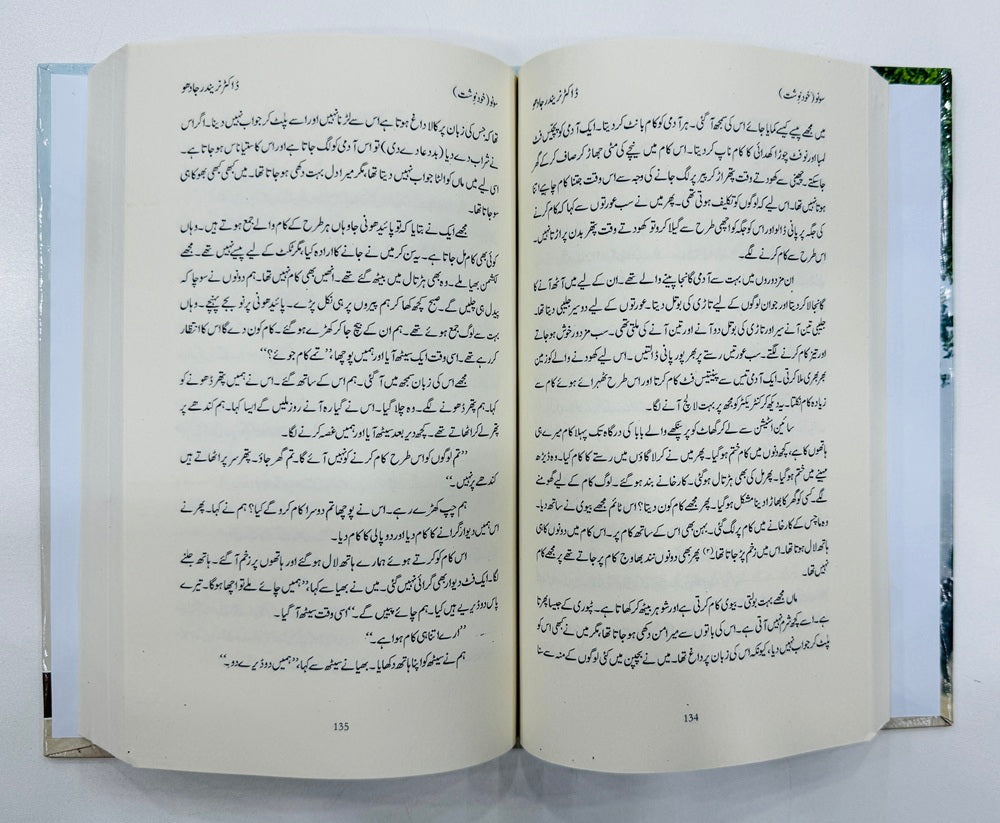 سونو (خودنوشت) ڈاکٹر نریندر جادھو
میں مجھے پیسے کیسے کمایا جائے اس کی سمجھ آ گئی۔ ہر آدمی کو کام بانٹ کر دیتا۔ ایک آدمی کو پچیس فٹ
لمبا اور نو فٹ چوڑا کھدائی کا کام ناپ کر دیتا۔ اس کام میں نیچے کی مٹی جھاڑ کر صاف کر کے گھر
جا سکتے۔ چھینی سے کھودتے وقت پتھر اڑ کر پیر پر لگ جانے کی وجہ سے اس وقت جتنا کام چاہیے اتنا
ہوتا نہیں تھا۔ اس لیے کہ لوگوں کو تکلیف ہوتی تھی۔ پھر میں نے سب عورتوں سے کہا کہ کام کرنے
کی جگہ پر پانی ڈالو اور اس کو جگہ کو اچھی طرح سے گیلا کرو تو کھودتے وقت پتھر بدن پر اڑتا نہیں۔
اس طرح سے کام کرنے لگے۔
اِن مزدوروں میں بہت سے آدمی گانجا پینے والے تھے۔ ان کے لیے میں آٹھ آنے کا
گانجا لا کر دیتا اور جوان لوگوں کے لیے تاڑی کی بوتل دیتا۔ عورتوں کے لیے دو سیر جلیبی تیتا تھا۔
جلیبی تین آنے سیر اور تاڑی کی بوتل دو آنے اور تین آنے کی ملتی تھی۔ سب مزدور خوش ہو جاتے
اور تیز کام کرنے لگتے۔ سب عورتیں رستے پر بھر پور پانی ڈالتیں۔ اس لیے کھودنے والے کو زمین
بھربھری ملا کرتی۔ ایک آدمی تیس سے پینتیس فٹ کام کرتا اور اس طرح ٹھہرائے ہوئے کام سے
زیادہ کام نکلتا۔ یہ دیکھ کر کنٹریکٹر کو مجھ پر بہت لالچ آنے لگا۔
سائین اسٹیشن سے لے کر گھاٹ کوپر پنکھے والے بابا کی درگاہ تک پہلا کام میرے ہی
ہاتھوں کا ہے، کچھ دنوں میں کام ختم ہو گیا۔ پھر میں نے کرلا گاؤں میں رستے کا کام کیا۔ وہ ڈیڑھ
مہینے میں ختم ہو گیا۔ پھر مل کی بھی ہڑتال ہو گئی۔ کارخانے بند ہو گئے۔ لوگ کام کے لیے گھومنے
لگے۔ کسی کو گھر کا بھاڑا دینا مشکل ہو گیا۔ پھر مجھے کام کون دیتا؟ اس ٹائم مجھے بیوی نے ساتھ دیا۔
وہ ماچس کے کارخانے میں کام پر لگ گئی۔ بہن بھی اس کے ساتھ کام پر۔ اس کام میں دونوں کا ہی
ہاتھ لال ہوتا تھا۔ اس میں زخم پڑ جاتا تھا۔(۲) پھر بھی دونوں نند بھاوج کام پر جاتے تھے پر مجھے کام
نہیں تھا۔
ماں مجھے بہت بولتی۔ بیوی کام کرتی ہے اور شوہر بیٹھ کر کھاتا ہے۔ ٹپوری کے جیسا پھرتا
ہے۔ اسے کچھ شرم نہیں آتی ہے۔ اس کی باتوں سے میرا من دکھی ہو جاتا تھا، مگر میں نے کبھی اس کو
پلٹ کر جواب نہیں دیا، کیونکہ اس کی زبان پر داغ تھا۔ میں نے بچپن میں کئی لوگوں کے منہ سے سنا
134
سونو (خودنوشت) ڈاکٹر نریندر جادھو
تھا کہ جس کی زبان پر کالا داغ ہوتا ہے اس سے لڑنا نہیں اور اسے پلٹ کر جواب نہیں دینا۔ اگر اس
نے شراب دے دیا (بددعا دے دی) تو اس آدمی کو لگ جاتا ہے اور اس کا ستیاناس ہو جاتا ہے۔
اسی لیے میں ماں کو الٹا جواب نہیں دیتا تھا، مگر میرا دل بہت دکھی ہو جاتا تھا۔ میں کبھی کبھی بھوکا ہی
سو جاتا تھا۔
مجھے ایک نے بتایا کہ تو پائیدھونی جا وہاں ہر طرح کے کام والے جمع ہوتے ہیں۔ وہاں
کوئی بھی کام مل جاتا ہے۔ یہ سن کر میں نے جانے کا ارادہ کیا، مگر ٹکٹ کے لیے پیسے نہیں تھے۔ مجھے
لکشمن بھیا ملے۔ وہ بھی ہڑتال میں بیٹھ گئے تھے۔ انھیں بھی کام نہیں تھا۔ ہم دونوں نے سوچا کہ
پیدل ہی چلیں گے۔ صبح کچھ کھا کر ہم پیروں پر ہی نکل پڑے۔ پائیدھونی پر نو بجے پہنچے۔ وہاں
بہت سے لوگ جمع ہوئے تھے۔ ہم ان کے بیچ جا کر کھڑے ہو گئے۔ کام کون دے گا اس کا انتظار
کر رہے تھے۔ اسی وقت ایک سیٹھ آیا اور ہمیں پوچھا، ”تمے کام جوئے؟“
مجھے اس کی زبان سمجھ میں آ گئی۔ ہم اس کے ساتھ گئے۔ اس نے ہمیں پتھر ڈھونے کو
کہا۔ ہم پتھر ڈھونے لگے۔ وہ چلا گیا۔ اس نے گیارہ آنے روز ملیں گے ایسا کہا۔ ہم کندھے پر
پتھر لے کر اٹھاتے تھے۔ کچھ دیر بعد سیٹھ آیا اور ہمیں غصہ کرنے لگا۔
”تم لوگوں کو اس طرح کام کرنے کو نہیں آئے گا۔ تم گھر جاؤ۔ پتھر سر پر اٹھاتے ہیں
کندھے پر نہیں۔“
ہم چپ کھڑے رہے۔ اس نے پوچھا تم دوسرا کام کرو گے کیا؟ ہم نے کہا۔ پھر نے
اس ہمیں دیوار گرانے کا کام دیا اور دو پالی کا کام دیا۔
اس کام کو کرتے ہوئے ہمارے ہاتھ لال ہو گئے اور ہاتھوں پر زخم آ گئے۔ ہاتھ جلنے
لگا۔ ایک فٹ دیوار بھی گرائی نہیں گئی۔ میں نے بھیا سے کہا، ”ہمیں چائے ملے تو اچھا ہو گا۔ تیرے
پاس دو ڈیریے ہیں کیا۔ ہم چائے پییں گے۔“ اسی وقت سیٹھ آ گیا۔
”ارے! اتنا ہی کام ہوا ہے۔“
ہم نے سیٹھ کو اپنا ہاتھ دکھایا۔ بھیا نے سیٹھ سے کہا، ”ہمیں دو ڈیرے دو۔“
135